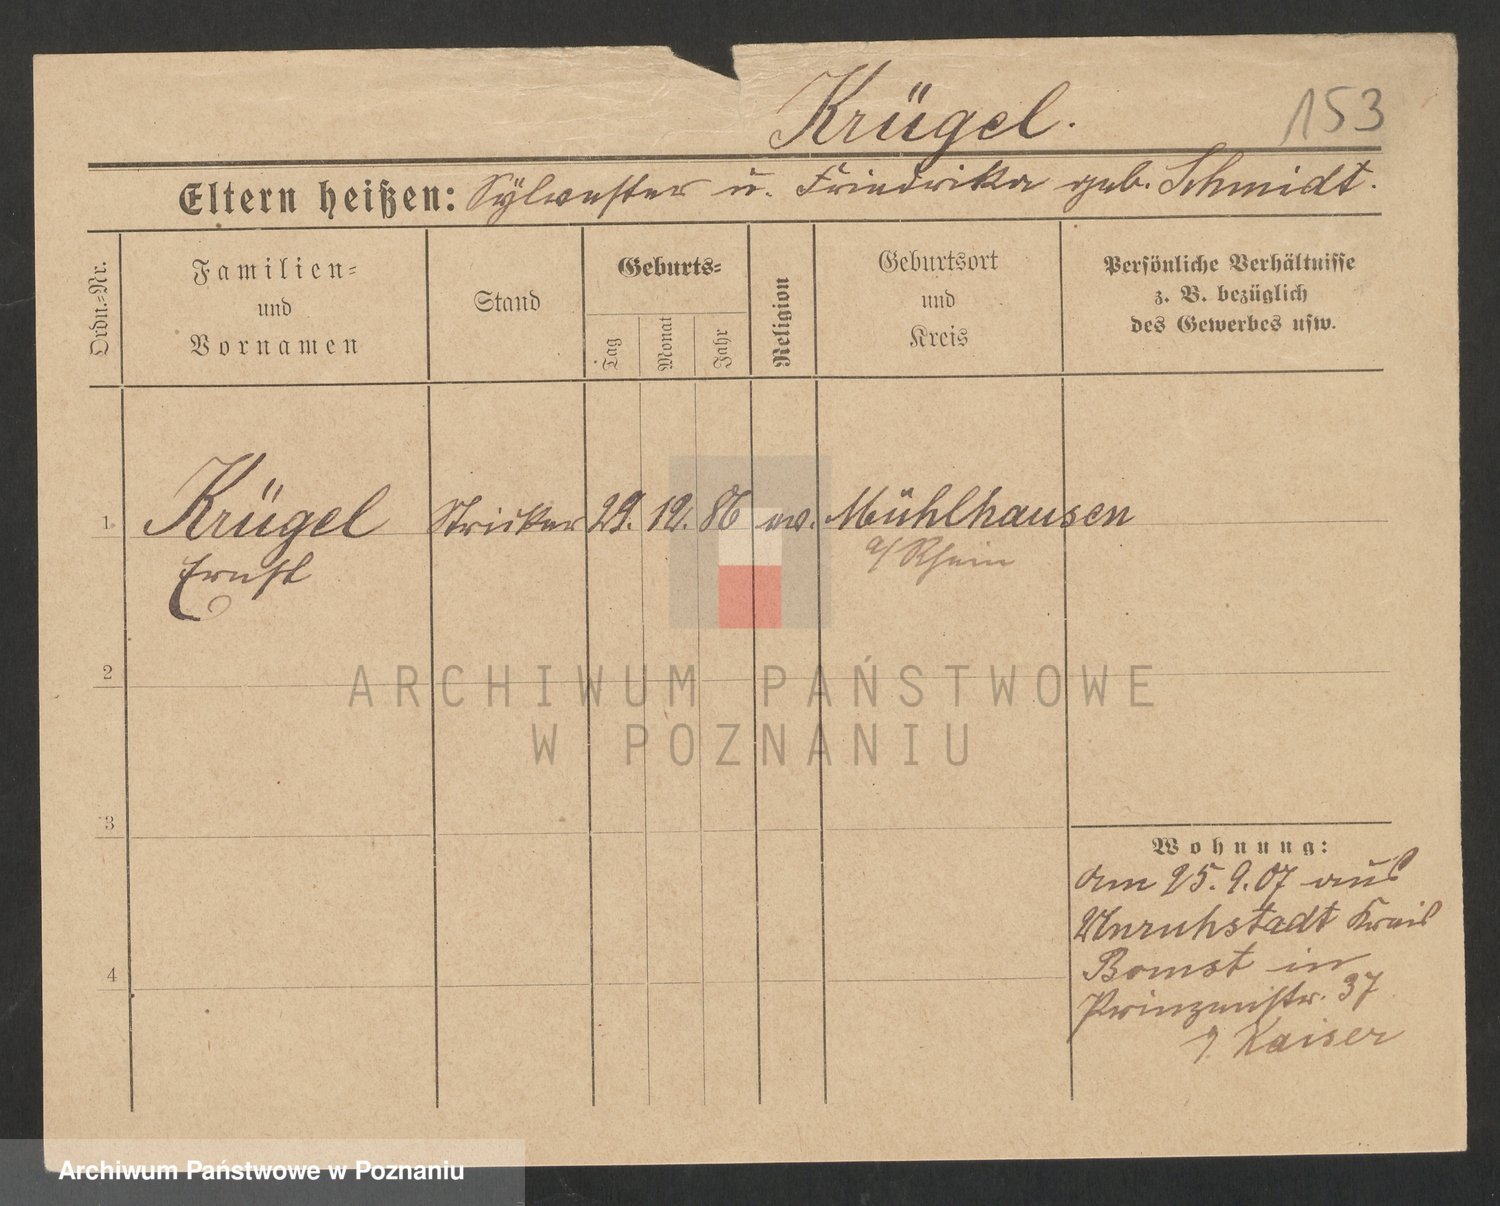 Krügel.
153
Eltern heißen: Sÿlvester u. Friedrika geb. Schmidt.
Ordn.=Nr.
Familien=
und
Vornamen
Stand
Geburts=
Tag
Monat
Jahr
Religion
Geburtsort
und
Kreis
Persönliche Verhältnisse
z. B. bezüglich
des Gewerbes usw.
1. Krügel Stricker 29. 12. 86 ev. Mühlhausen
Ernst
a/ Rhein
2
3
4
Wohnung:
am 25. 9. 07 aus
Unruhstadt Kreis
Bomst in
Prinzenstr. 37
Kaiser
ARCHIWUM PAŃSTWOWE
W POZNANIU
Archiwum Państwowe w Poznaniu